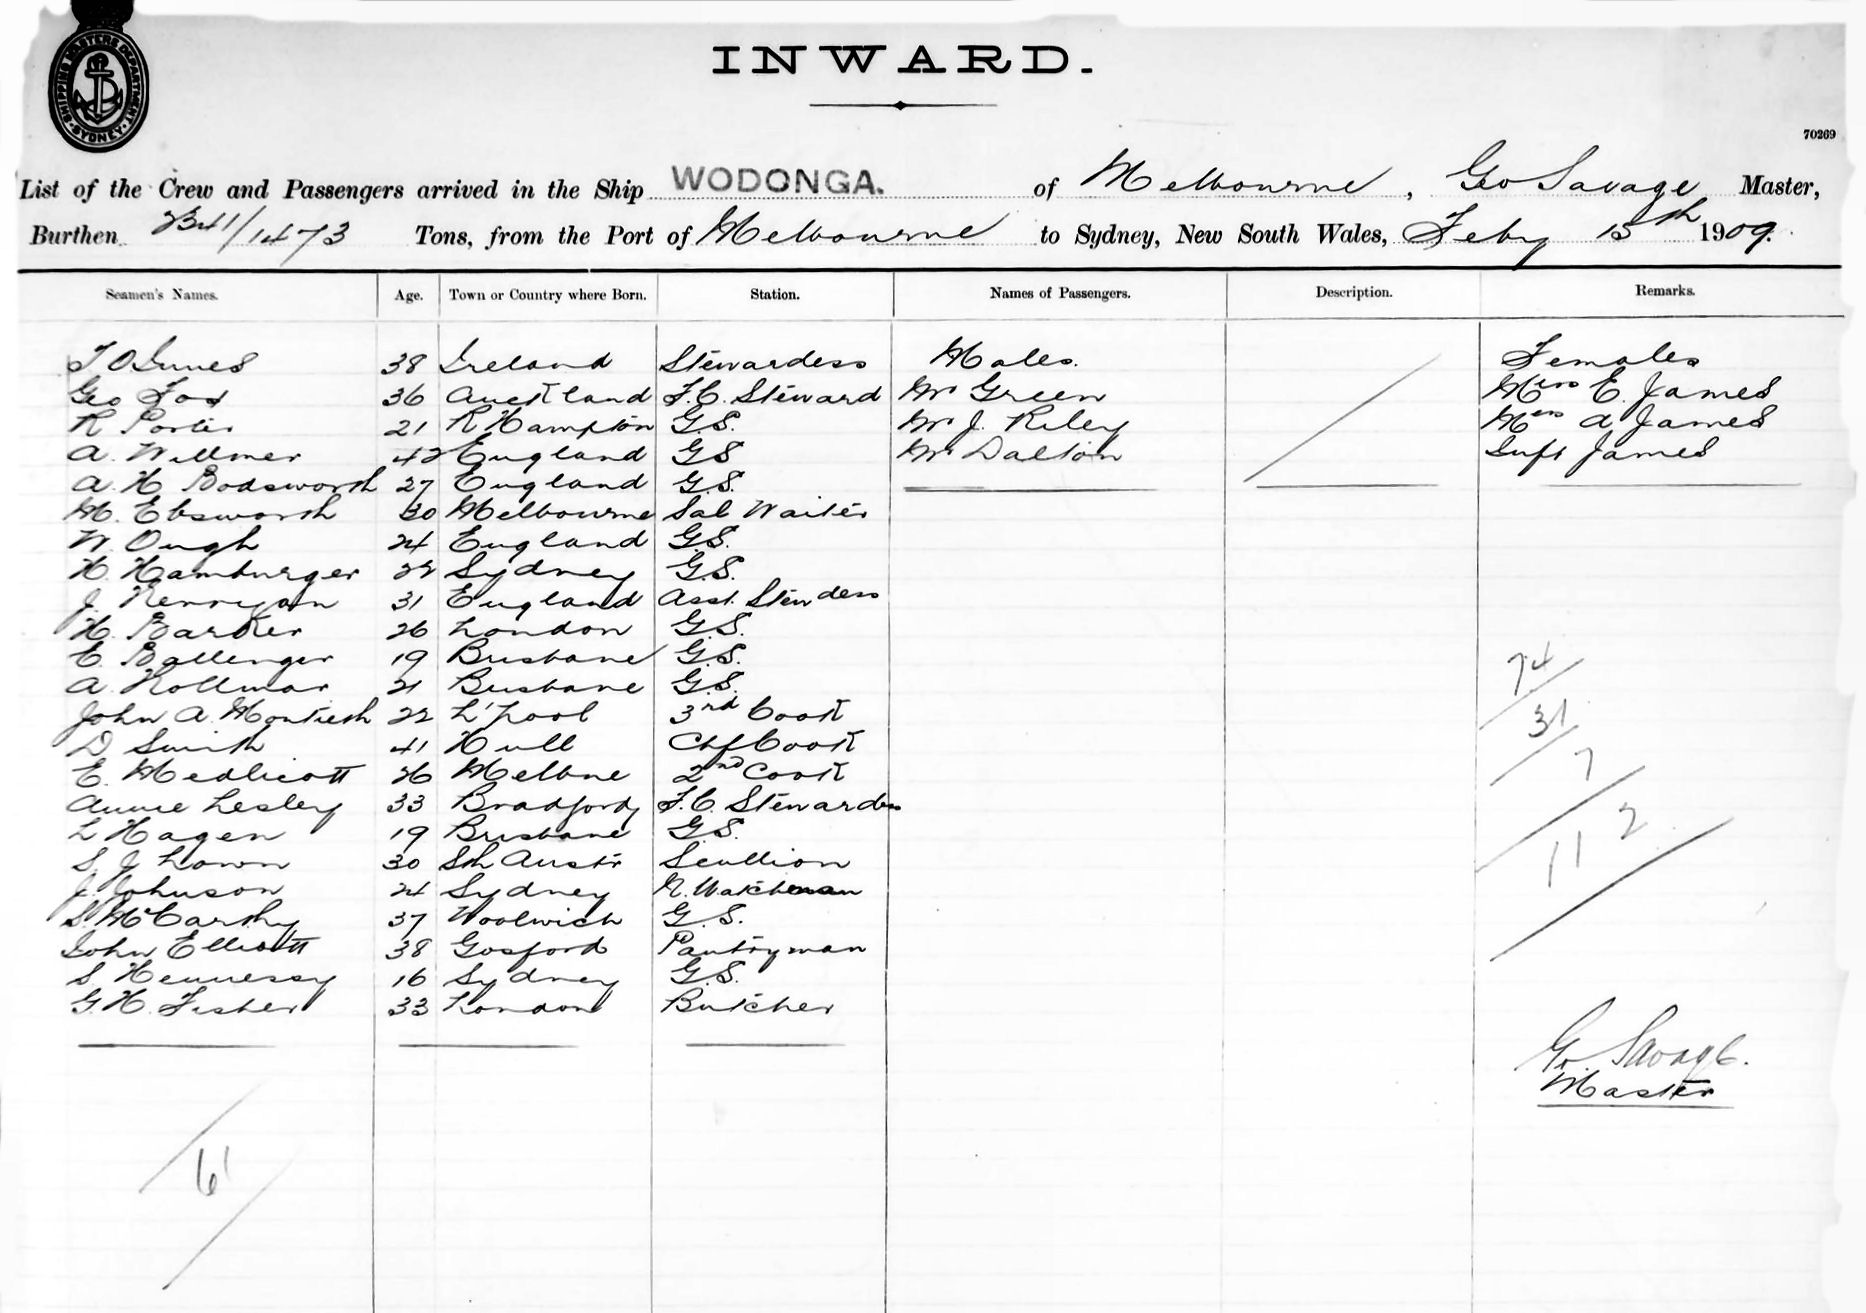 SHIPPING MASTERS DEPARTMENT SYDNEY
INWARD.
70269
List of the Crew and Passengers arrived in the Ship WODONGA. of Melbourne, Geo Savage Master,
Burthen 2341/1473 Tons, from the Port of Melbourne to Sydney, New South Wales, Feby 15th 1909.
Seamen's Names. Age. Town or Country where Born. Station. Names of Passengers. Description. Remarks.
38 Ireland Stewardess Males. Females
Geo Fox 36 Auckland F.C. Steward Mr Green E. James
R Porter 21 R Hampton G.S. Mr J. Riley A James
A. Willmer 42 England G S Mr Dalton James
A. H Bodsworth 27 England G.S.
M. Ebsworth 30 Melbourne Sal Waiter
W. Ough 24 England G.S.
H. Hamburger 22 Sydney G.S.
J. Kerrigan 31 England Asst. Stewdess
H. Barker 26 London G.S.
E. Ballenger 19 Brisbane G.S.
A. Kollmar 21 Brisbane G.S.
John A. Montieth 22 L'pool 3rd Cook
D Smith 41 Hull Chf Cook
E. Medlicott 26 Melbne 2nd Cook
Annie Lesley 33 Bradford F.C. Stewardess
L Hagen 19 Brisbane G.S.
S. J. Lown 30 Sth Austr Scullion
J. Johnson 24 Sydney N. Watchman
S. McCarthy 37 Woolwich G.S.
John Elliott 38 Gosford Pantryman
S Hennessy 16 Sydney G.S.
G. H. Fisher 33 London Butcher
74
31
7
2
11
Geo. Savage.
Master
61